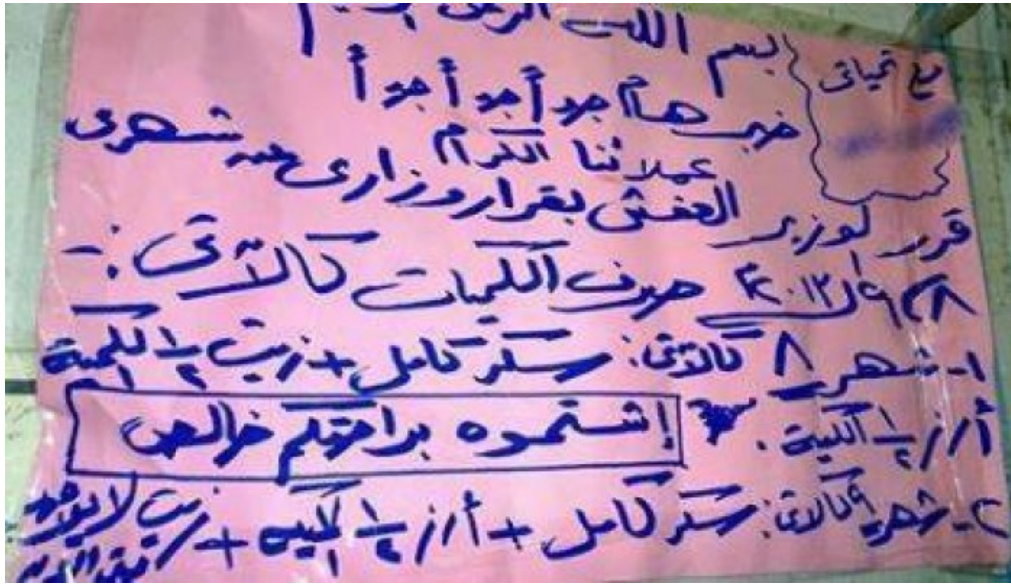 بسم الله الرحمن الرحيم
مع تحياتى
خبر هام جداً جداً جداً
عملائنا الكرام
قرر لوزير العفش بقرار وزارى عن شهرى
٨ ، ٩ لـ ٢٠١٣ صرف الكميات كالآتى :-
١- شهر ٨ كالآتى: سكر كامل + زيت ١/٢ الكمية
أرز ١/٢ الكمية .
إشتموه براحتكم خالص
٢- شهر ٩ كالآتى: سكر كامل + أرز ١/٢ الكمية + زيت لا يوجد